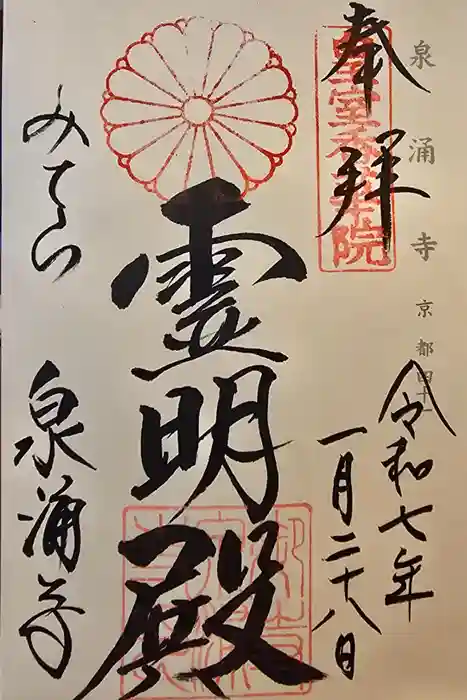 泉涌寺 京都
奉拝
皇室香華院
令和七年
一月二十八日
霊明殿
みてら
泉涌寺